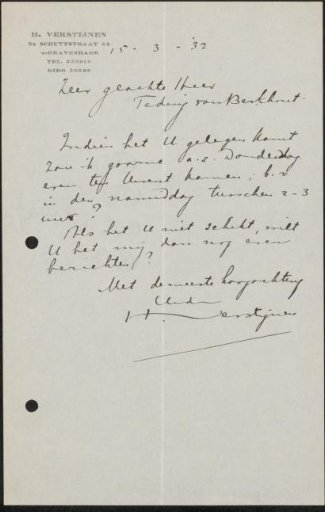 H. VERSTIJNEN
2e SCHUYTSTRAAT
'sGRAVENHAGE
TEL.
GIRO
15 - 3 - '32
Zeer geachte Heer
Teding van Berkhout.
Indien het U gelegen komt
zou ik gaarne a.s. Donderdag
even ten Uwent komen; b.v.
in den namiddag tusschen 2-3
uur?
Als het U niet schikt, wilt
U het mij dan nog even
berichten?
Met de meeste hoogachting
H. Verstijnen